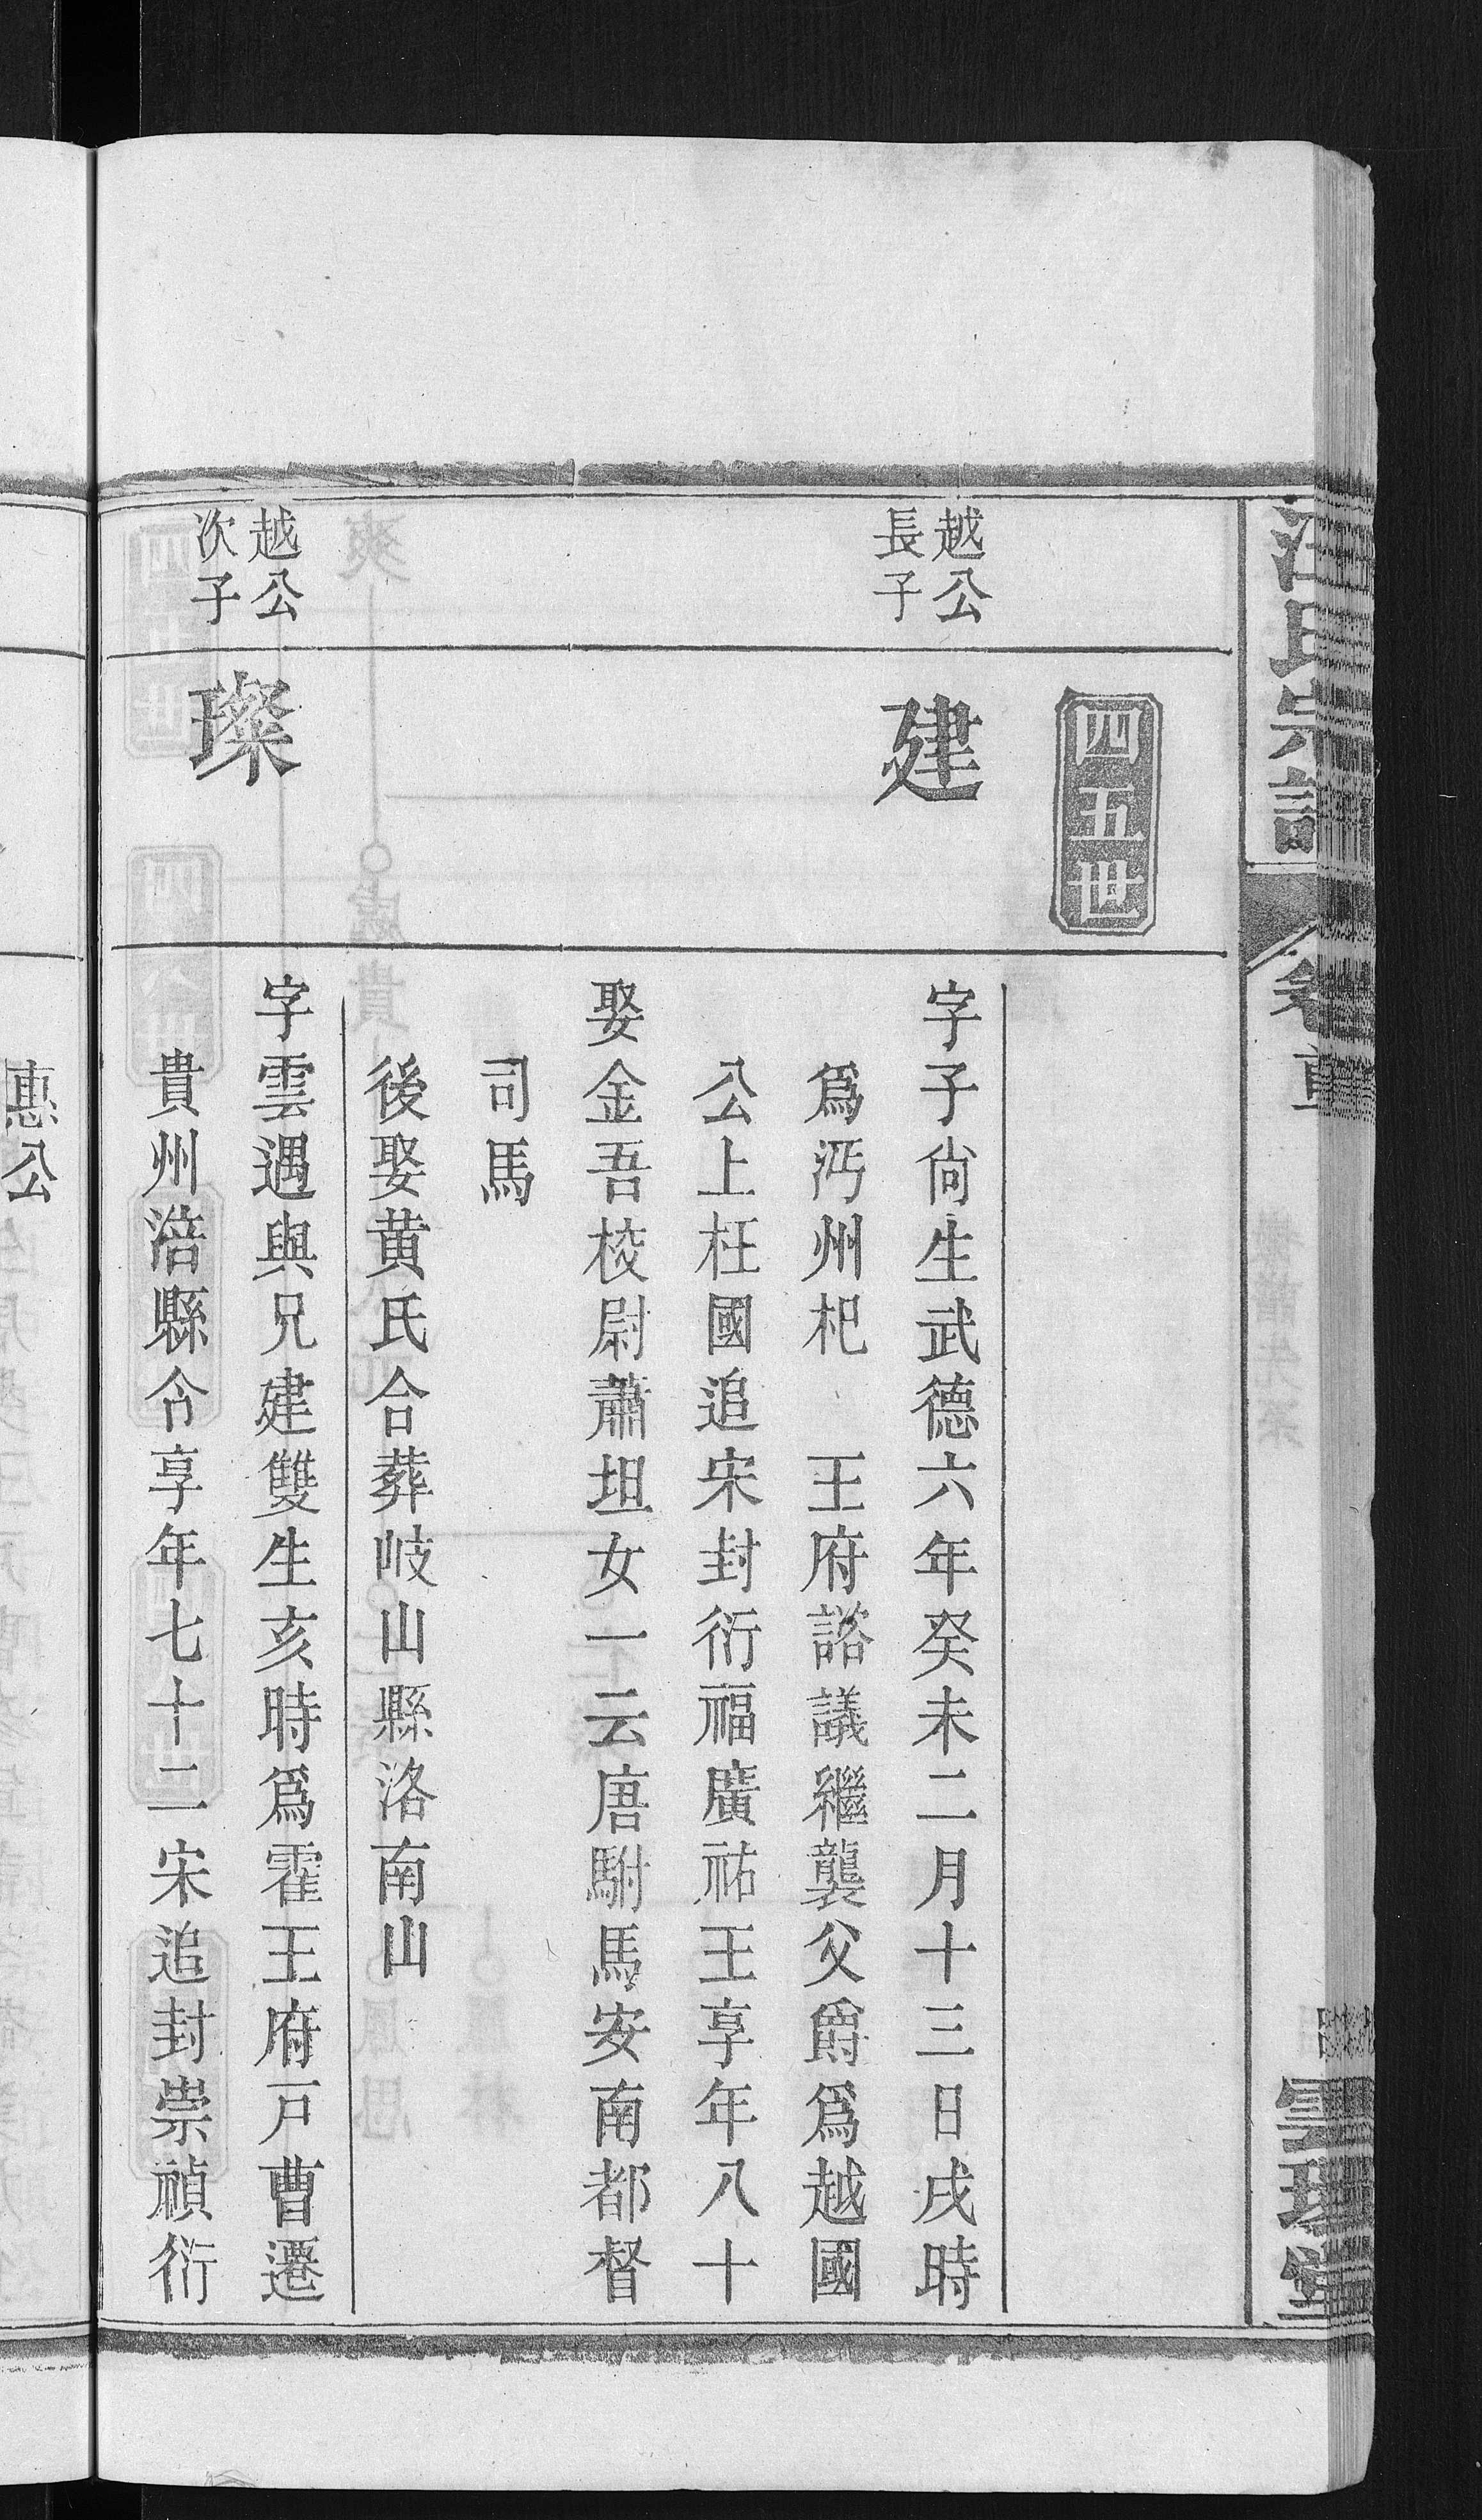 汪氏宗譜
卷首
四五世
越公
長子
建
字子尙生武德六年癸未二月十三日戌時
爲沔州杷 王府諮議繼襲父爵爲越國
公上枉國追宋封衍福廣祐王享年八十
娶金吾校尉蕭坦女一云唐駙馬安南都督
司馬
後娶黄氏合葬岐山縣洛南山
越公
次子
璨
字雲遇與兄建雙生亥時爲霍王府戸曹遷
貴州涪縣令享年七十二宋追封崇禎衍
惠公